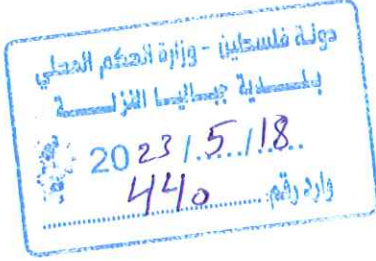 دولة فلسطين - وزارة الحكم المحلي
بلدية جباليا النزلة
2023/5/18
وارد رقم: 440